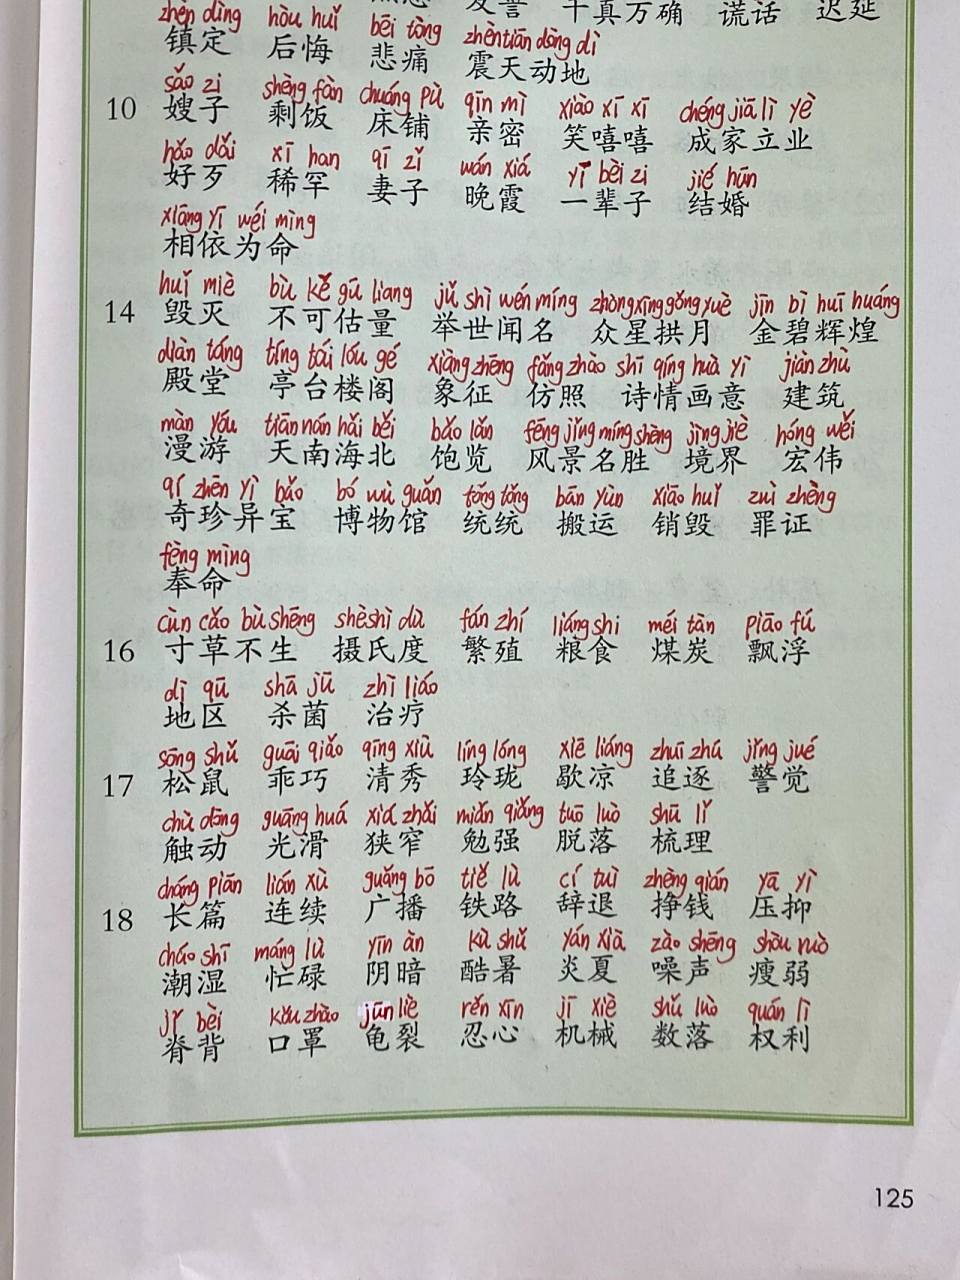 千真万确 谎话 迟延
zhèn dìng hòu huǐ bēi tòng zhèn tiān dòng dì
镇定 后悔 悲痛 震天动地
sǎo zi shèng fàn chuáng pù qīn mì xiào xī xī chéng jiā lì yè
10 嫂子 剩饭 床铺 亲密 笑嘻嘻 成家立业
hǎo dǎi xī han qī zǐ wǎn xiá yī bèi zi jié hūn
好歹 稀罕 妻子 晚霞 一辈子 结婚
xiāng yī wéi mìng
相依为命
huǐ miè bù kě gū liang jǔ shì wén míng zhòng xīng gǒng yuè jīn bì huī huáng
14 毁灭 不可估量 举世闻名 众星拱月 金碧辉煌
diàn táng tíng tái lóu gé xiàng zhēng fǎng zhào shī qíng huà yì jiàn zhù
殿堂 亭台楼阁 象征 仿照 诗情画意 建筑
màn yóu tiān nán hǎi běi bǎo lǎn fēng jǐng míng shèng jìng jiè hóng wěi
漫游 天南海北 饱览 风景名胜 境界 宏伟
qí zhēn yì bǎo bó wù guǎn tǒng tǒng bān yùn xiāo huǐ zuì zhèng
奇珍异宝 博物馆 统统 搬运 销毁 罪证
fèng mìng
奉命
cùn cǎo bù shēng shè shì dù fán zhí liáng shi méi tàn piāo fú
16 寸草不生 摄氏度 繁殖 粮食 煤炭 飘浮
dì qū shā jūn zhì liáo
地区 杀菌 治疗
sōng shǔ guāi qiǎo qīng xiù líng lóng xiē liáng zhuī zhú jǐng jué
17 松鼠 乖巧 清秀 玲珑 歇凉 追逐 警觉
chù dòng guāng huá xiá zhǎi miǎn qiǎng tuō luò shū lǐ
触动 光滑 狭窄 勉强 脱落 梳理
cháng piān lián xù guǎng bō tiě lù cí tuì zhèng qián yā yì
18 长篇 连续 广播 铁路 辞退 挣钱 压抑
cháo shī máng lù yīn àn kù shǔ yán xià zào shēng shòu ruò
潮湿 忙碌 阴暗 酷暑 炎夏 噪声 瘦弱
jǐ bèi kǒu zhào jūn liè rěn xīn jī xiè shǔ luò quán lì
脊背 口罩 龟裂 忍心 机械 数落 权利
125